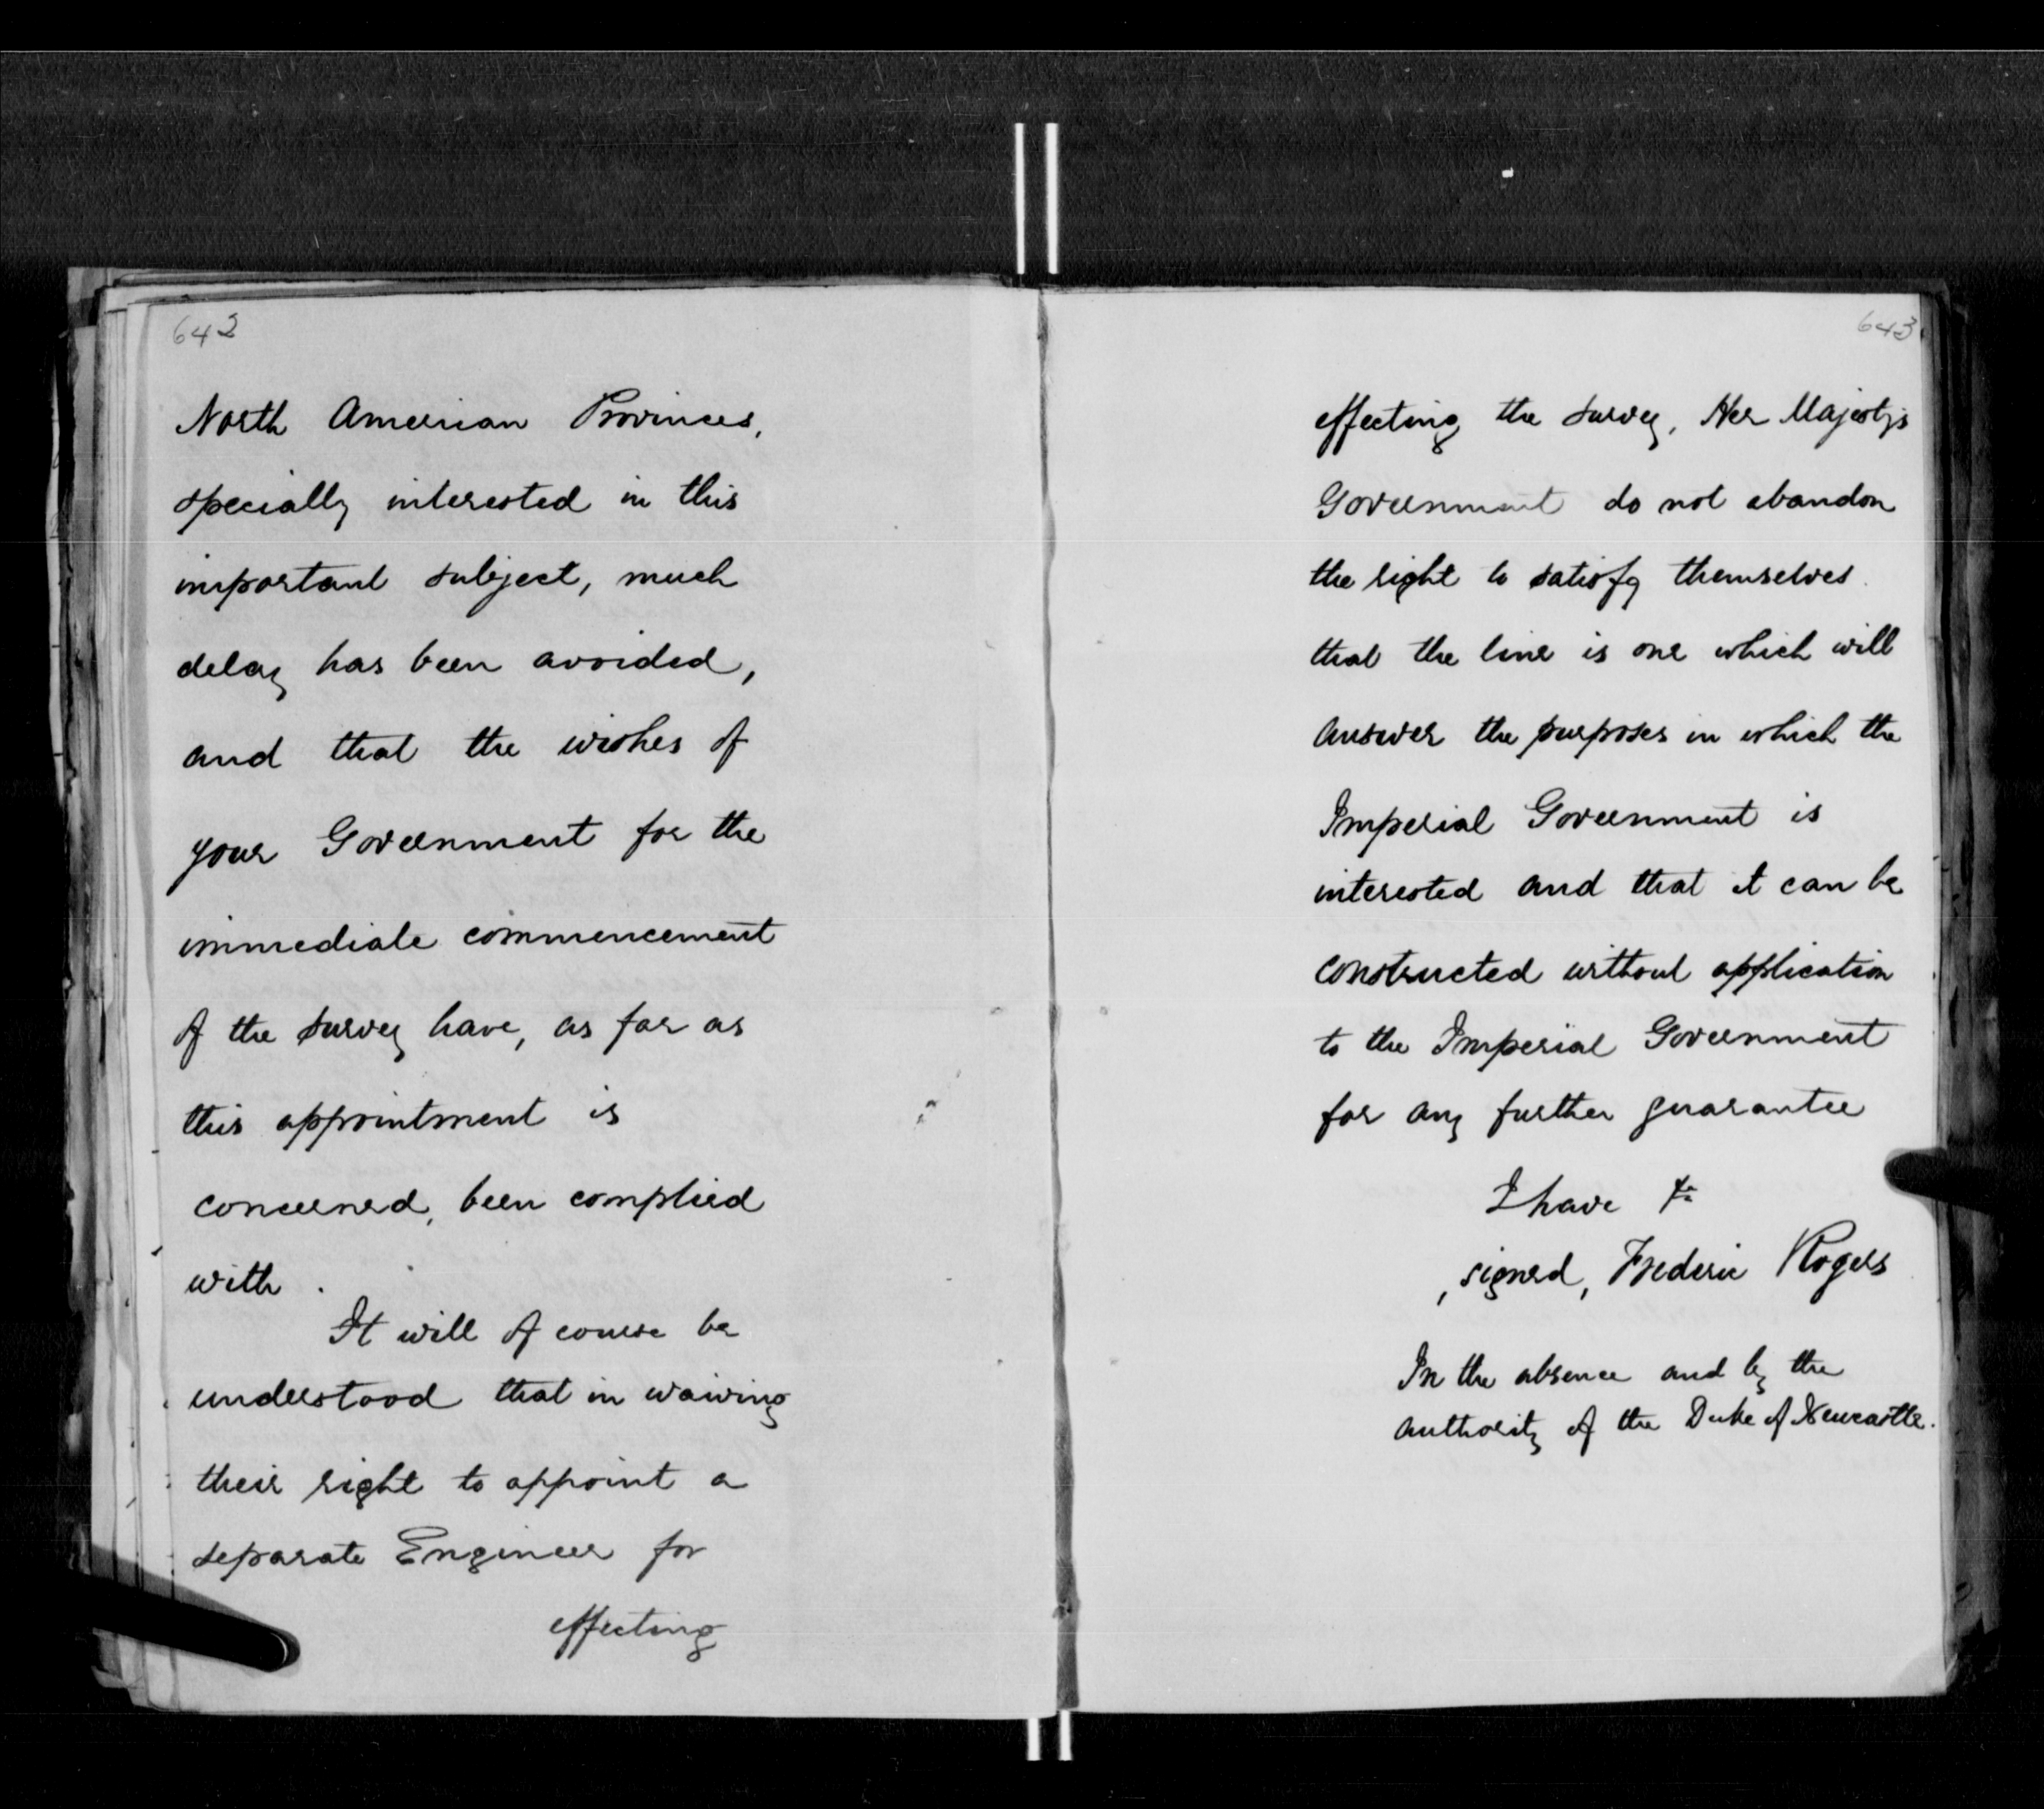 642
North American Provinces,
specially interested in this
important subject, much
delay has been avoided,
and that the wishes of
your Government for the
immediate commencement
of the survey have, as far as
this appointment is
concerned, been complied
with.
It will of course be
understood that in waiving
their right to appoint a
separate Engineer for
effecting
643
effecting the survey, Her Majestys
Government do not abandon
the right to satisfy themselves
that the line is one which will
answer the purposes in which the
Imperial Government is
interested and that it can be
constructed without application
to the Imperial Government
for any further guarantee
I have &c
signed, Frederic Rogers
In the absence and by the
authority of the Duke of Newcastle.